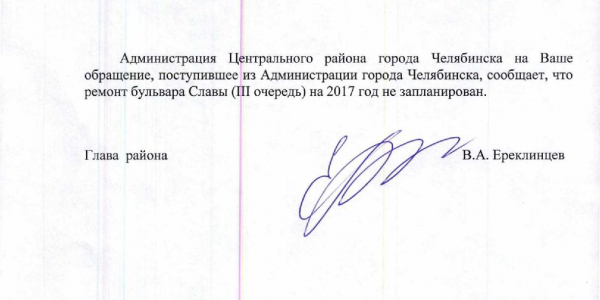 Администрация Центрального района города Челябинска на Ваше
обращение, поступившее из Администрации города Челябинска, сообщает, что
ремонт бульвара Славы (III очередь) на 2017 год не запланирован.
Глава района
В.А. Ереклинцев